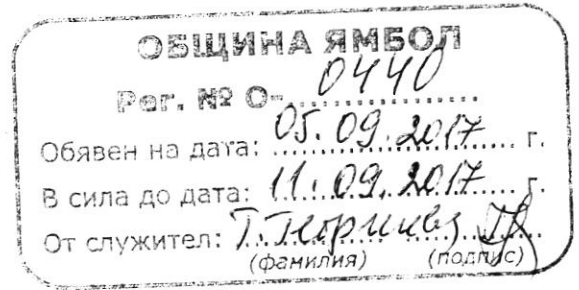 ОБЩИНА ЯМБОЛ
Рег. № О- 0440
Обявен на дата: 05.09.2017 г.
В сила до дата: 11.09.2017 г.
От служител: Т.
(фамилия) (подпис)